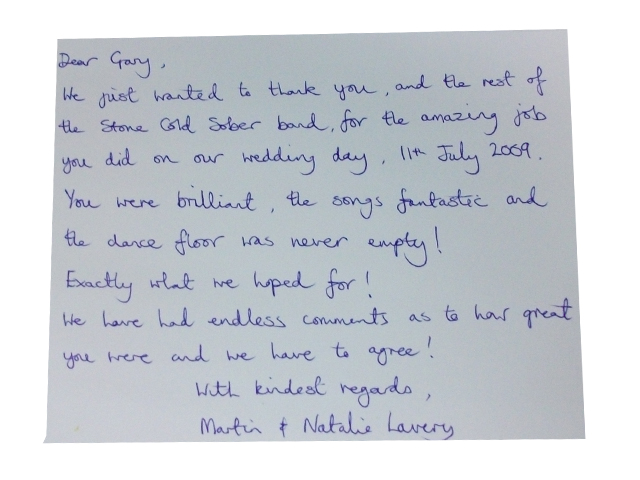 Dear Gary,
We just wanted to thank you, and the rest of
the Stone Cold Sober band, for the amazing job
you did on our wedding day, 11th July 2009.
You were brilliant, the songs fantastic and
the dance floor was never empty!
Exactly what we hoped for!
We have had endless comments as to how great
you were and we have to agree!
With kindest regards,
Martin & Natalie Lavery